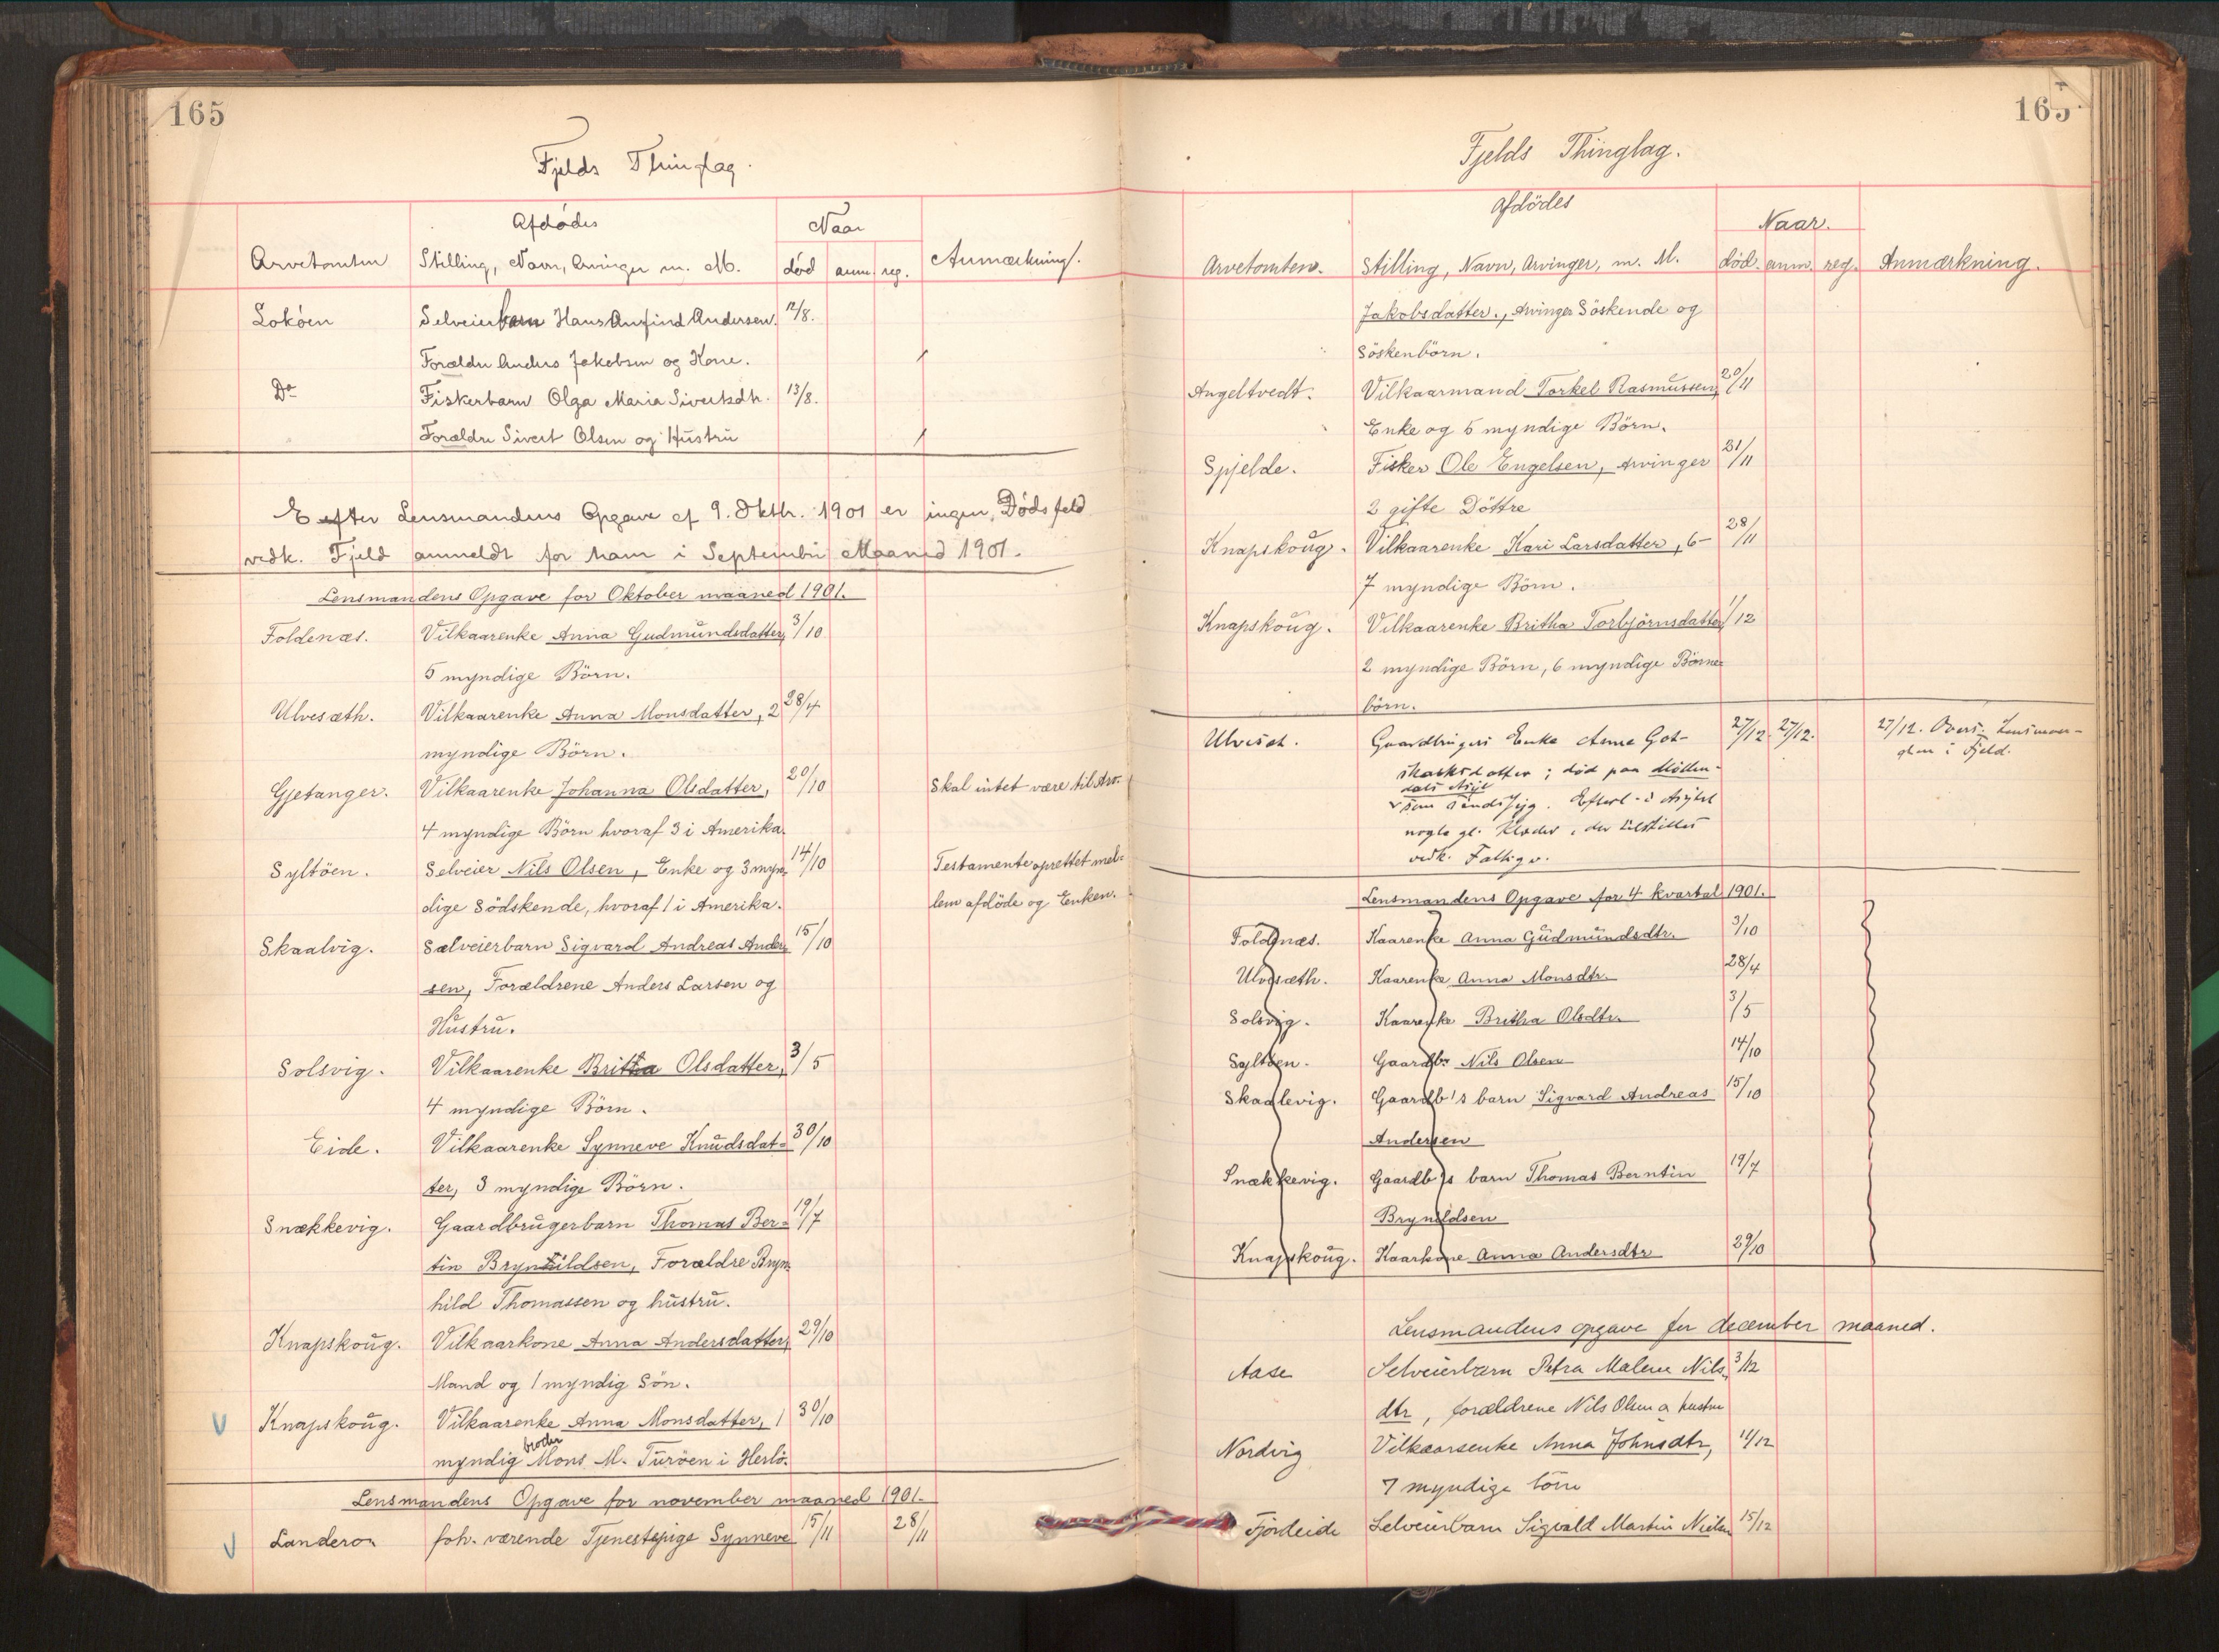 165
Fjelds Thinglag.
Afdødes
Naar
Arvetomten Stilling, Navn, Arvinger m. M. død anm. reg. Anmærkning.
Lokøen Selveierbarn Hans Anfind Andersen. 12/8.
Forældre Anders Jakobsen og Kone.
Do Fiskerbarn Olga Maria Sivertsdtr. 13/8.
Forældre Sivert Olsen og Hustru
Efter Lensmandens Opgave af 9. Oktbr. 1901 er ingen Dødsfald
vedk. Fjeld anmeldt for ham i September Maaned 1901.
Lensmandens Opgave for Oktober maaned 1901.
Foldenæs. Vilkaarenke Anna Gudmundsdatter, 3/10
5 myndige Börn.
Ulvesæth. Vilkaarenke Anna Monsdatter, 2 28/4
myndige Börn.
Gjetanger. Vilkaarenke Johanna Olsdatter, 20/10 Skal intet være til Arv.
4 myndige Börn hvoraf 3 i Amerika.
Syltöen. Selveier Nils Olsen, Enke og 3 myn- 14/10 Testamente oprettet mel-
dige Södskende, hvoraf 1 i Amerika. lem afdöde og Enken.
Skaalvig. Sælveierbarn Sigvard Andreas Ander- 15/10
sen, Forældrene Anders Larsen og
Hustru.
Solsvig. Vilkaarenke Britha Olsdatter, 3/5
4 myndige Börn.
Eide. Vilkaarenke Synneve Knudsdat- 30/10
ter, 3 myndige Börn.
Snækkevig. Gaardbrugerbarn Thomas Ber- 19/7
tin Brynhildsen, Forældre Bryn-
hild Thomassen og hustru.
Knapskoug. Vilkaarkone Anna Andersdatter, 29/10
Mand og 1 myndig Sön.
Knapskoug. Vilkaarenke Anna Monsdatter, 1 30/10
myndig broder Mons M. Turöen i Herlö.
Lensmandens Opgave for november maaned 1901.
Landero foh. værende Tjenestepige Synneve 15/11 28/11
165
Fjelds Thinglag.
Afdödes
Naar.
Arvetomten. Stilling, Navn, Arvinger, m. M. död. anm. reg. Anmærkning.
Jakobsdatter., Arvinger Söskende og
Söskenbörn.
Angeltvedt. Vilkaarmand Torkel Rasmussen, 20/11
Enke og 5 myndige Börn.
Spjelde. Fisker Ole Engelsen, Arvinger 21/11
2 gifte Döttre
Knapskoug. Vilkaarenke Kari Larsdatter, 6- 28/11
7 myndige Börn.
Knapskoug. Vilkaarenke Britha Torbjörnsdatter 1/12
2 myndige Börn, 6 myndige Börne-
börn.
Ulveset. Gaardbrugers Enke Anna Got- 27/12. 27/12. 27/12. Overs. Lensman-
skalksdatter; död paa Möllen- den i Fjeld.
dals Asyl
som sindssyg. Efterl. i Asylet
nogle gl. Klæder, der tilstilles
vedk. Fattigv.
Lensmandens Opgave for 4 kvartal 1901.
Foldnæs. Kaarenke Anna Gudmundsdtr. 3/10
Ulvesæth. Kaarenke Anna Monsdtr. 28/4
Solsvig. Kaarenke Britha Olsdtr. 3/5
Syltöen. Gaardbr. Nils Olsen 14/10
Skaalevig. Gaardb's barn Sigvard Andreas 15/10
Andersen
Snækkevig. Gaardb's barn Thomas Berntin 19/7
Brynildsen
Knapskoug. Kaarkone Anna Andersdtr 29/10
Lensmandens opgave for december maaned.
Aase Selveierbarn Petra Malene Nils- 3/12
dtr, forældrene Nils Olsen og hustru
Nordvig Vilkaarsenke Anna Johnsdtr, 11/12
7 myndige börn
Fjordeide Selveierbarn Sigvald Martin Nielsen 15/12